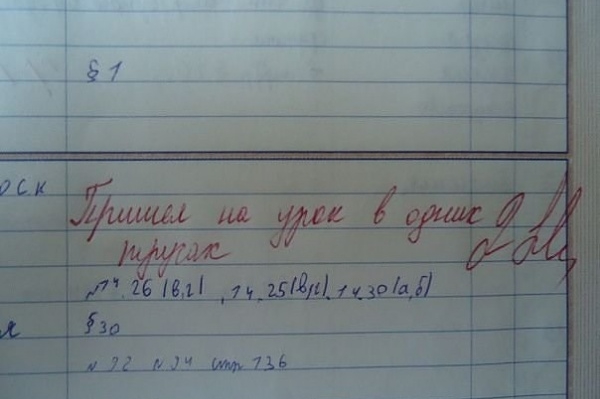 § 1
оск
Пришел на урок в одних 2
трусах
№14.26(в,г), 14.25(в,г), 14.30(а,б)
§30
№92 №94 стр 136